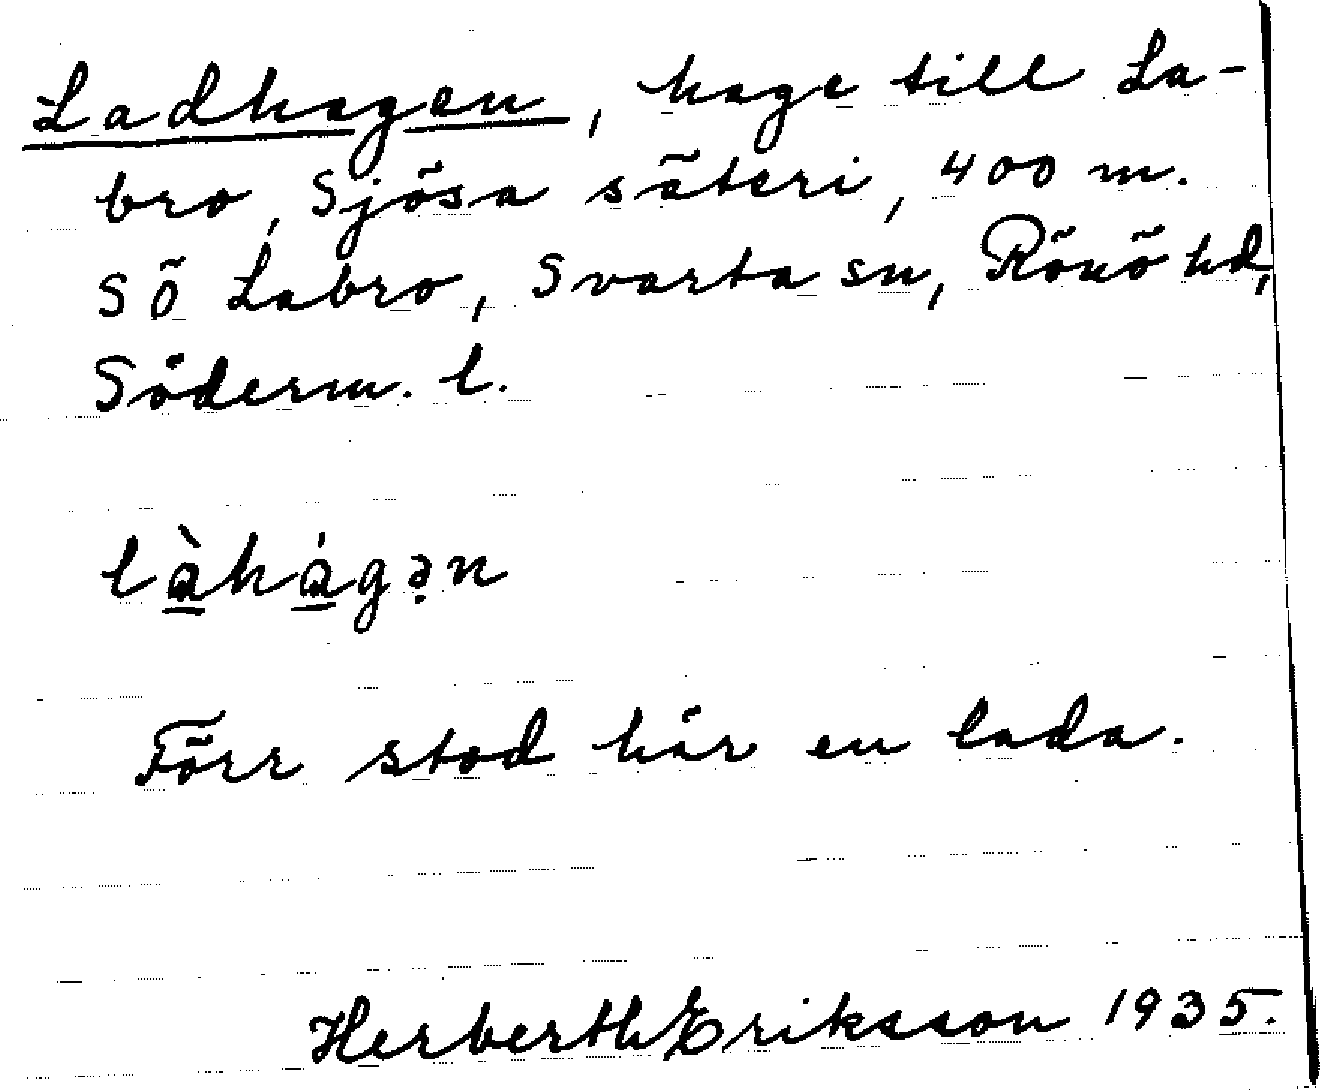 Ladhagen, hage till La-
bro, Sjösa säteri, 400 m.
SÖ Labro, Svarta sn, Rönö hd,
Söderm. l.
làhágən
Förr stod här en lada.
Herberth Eriksson 1935.